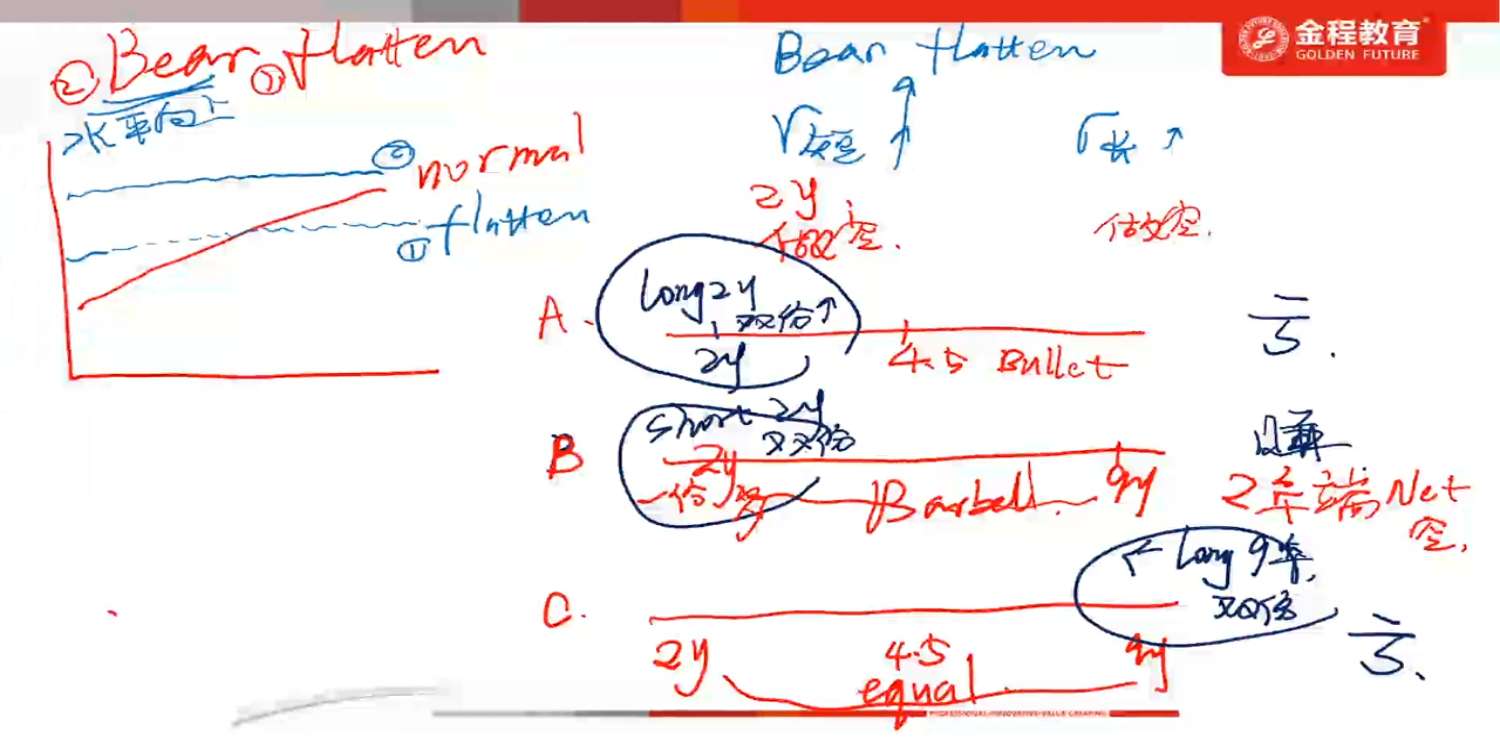 ② Bear ① flatten
水平向上
② normal
① flatten
金程教育
GOLDEN FUTURE
Bear flatten
r短 ↑ r长 ↑
2y
做空. 做空.
A. long 2y
双份↑
2y 4.5 Bullet 亏.
B short 2y
双份
2y 9y
一份多 Barbell 2年端 Net
空.
C. ← long 9年,
双份
2y 4.5 9y 亏.
equal